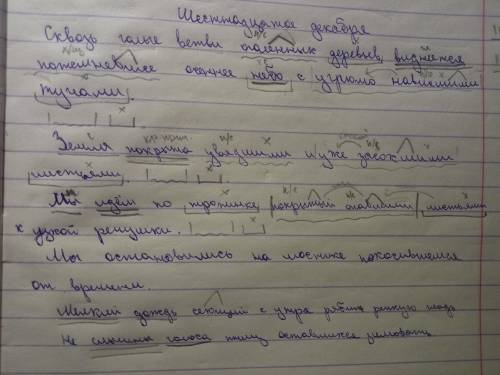 Шестнадцатое декабря
Сквозь голые ветви оголённых деревьев, виднеется
потемневшее осеннее небо с угрюмо нависшими
тучами.
Земля покрыта увядшими и уже засохшими
листьями.
Мы идём по тропинке, покрытой опавшими листьями
к узкой речушке.
Мы остановились на мостике покосившемся
от времени.
Мелкий дождь секущий с утра рябит речную гладь
Не слышны голоса птиц оставшихся зимовать